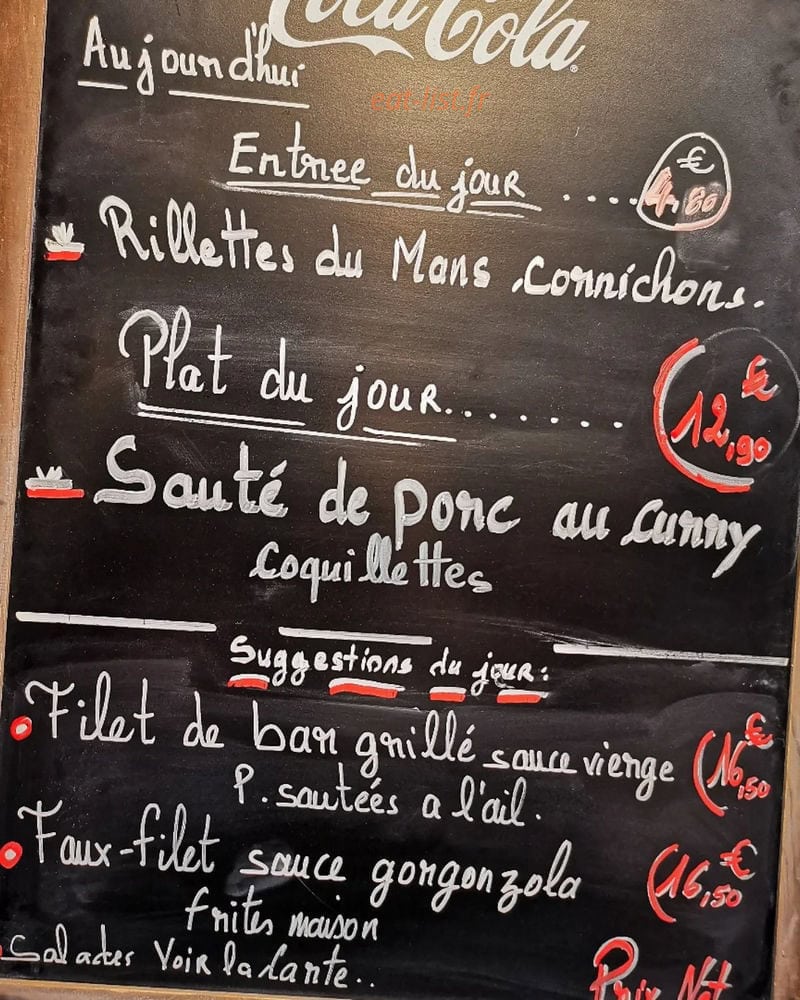 Coca-Cola
Aujourd'hui
eat-list.fr
Entree du jour ..... € 4,80
Rillettes du Mans, cornichons.
Plat du jour........ € 12,90
Sauté de porc au curry
coquillettes
Suggestions du jour:
Filet de bar grillé sauce vierge € 16,50
P. sautées a l'ail.
Faux-filet sauce gorgonzola € 16,50
frites maison
Salades Voir la carte..
Prix Net